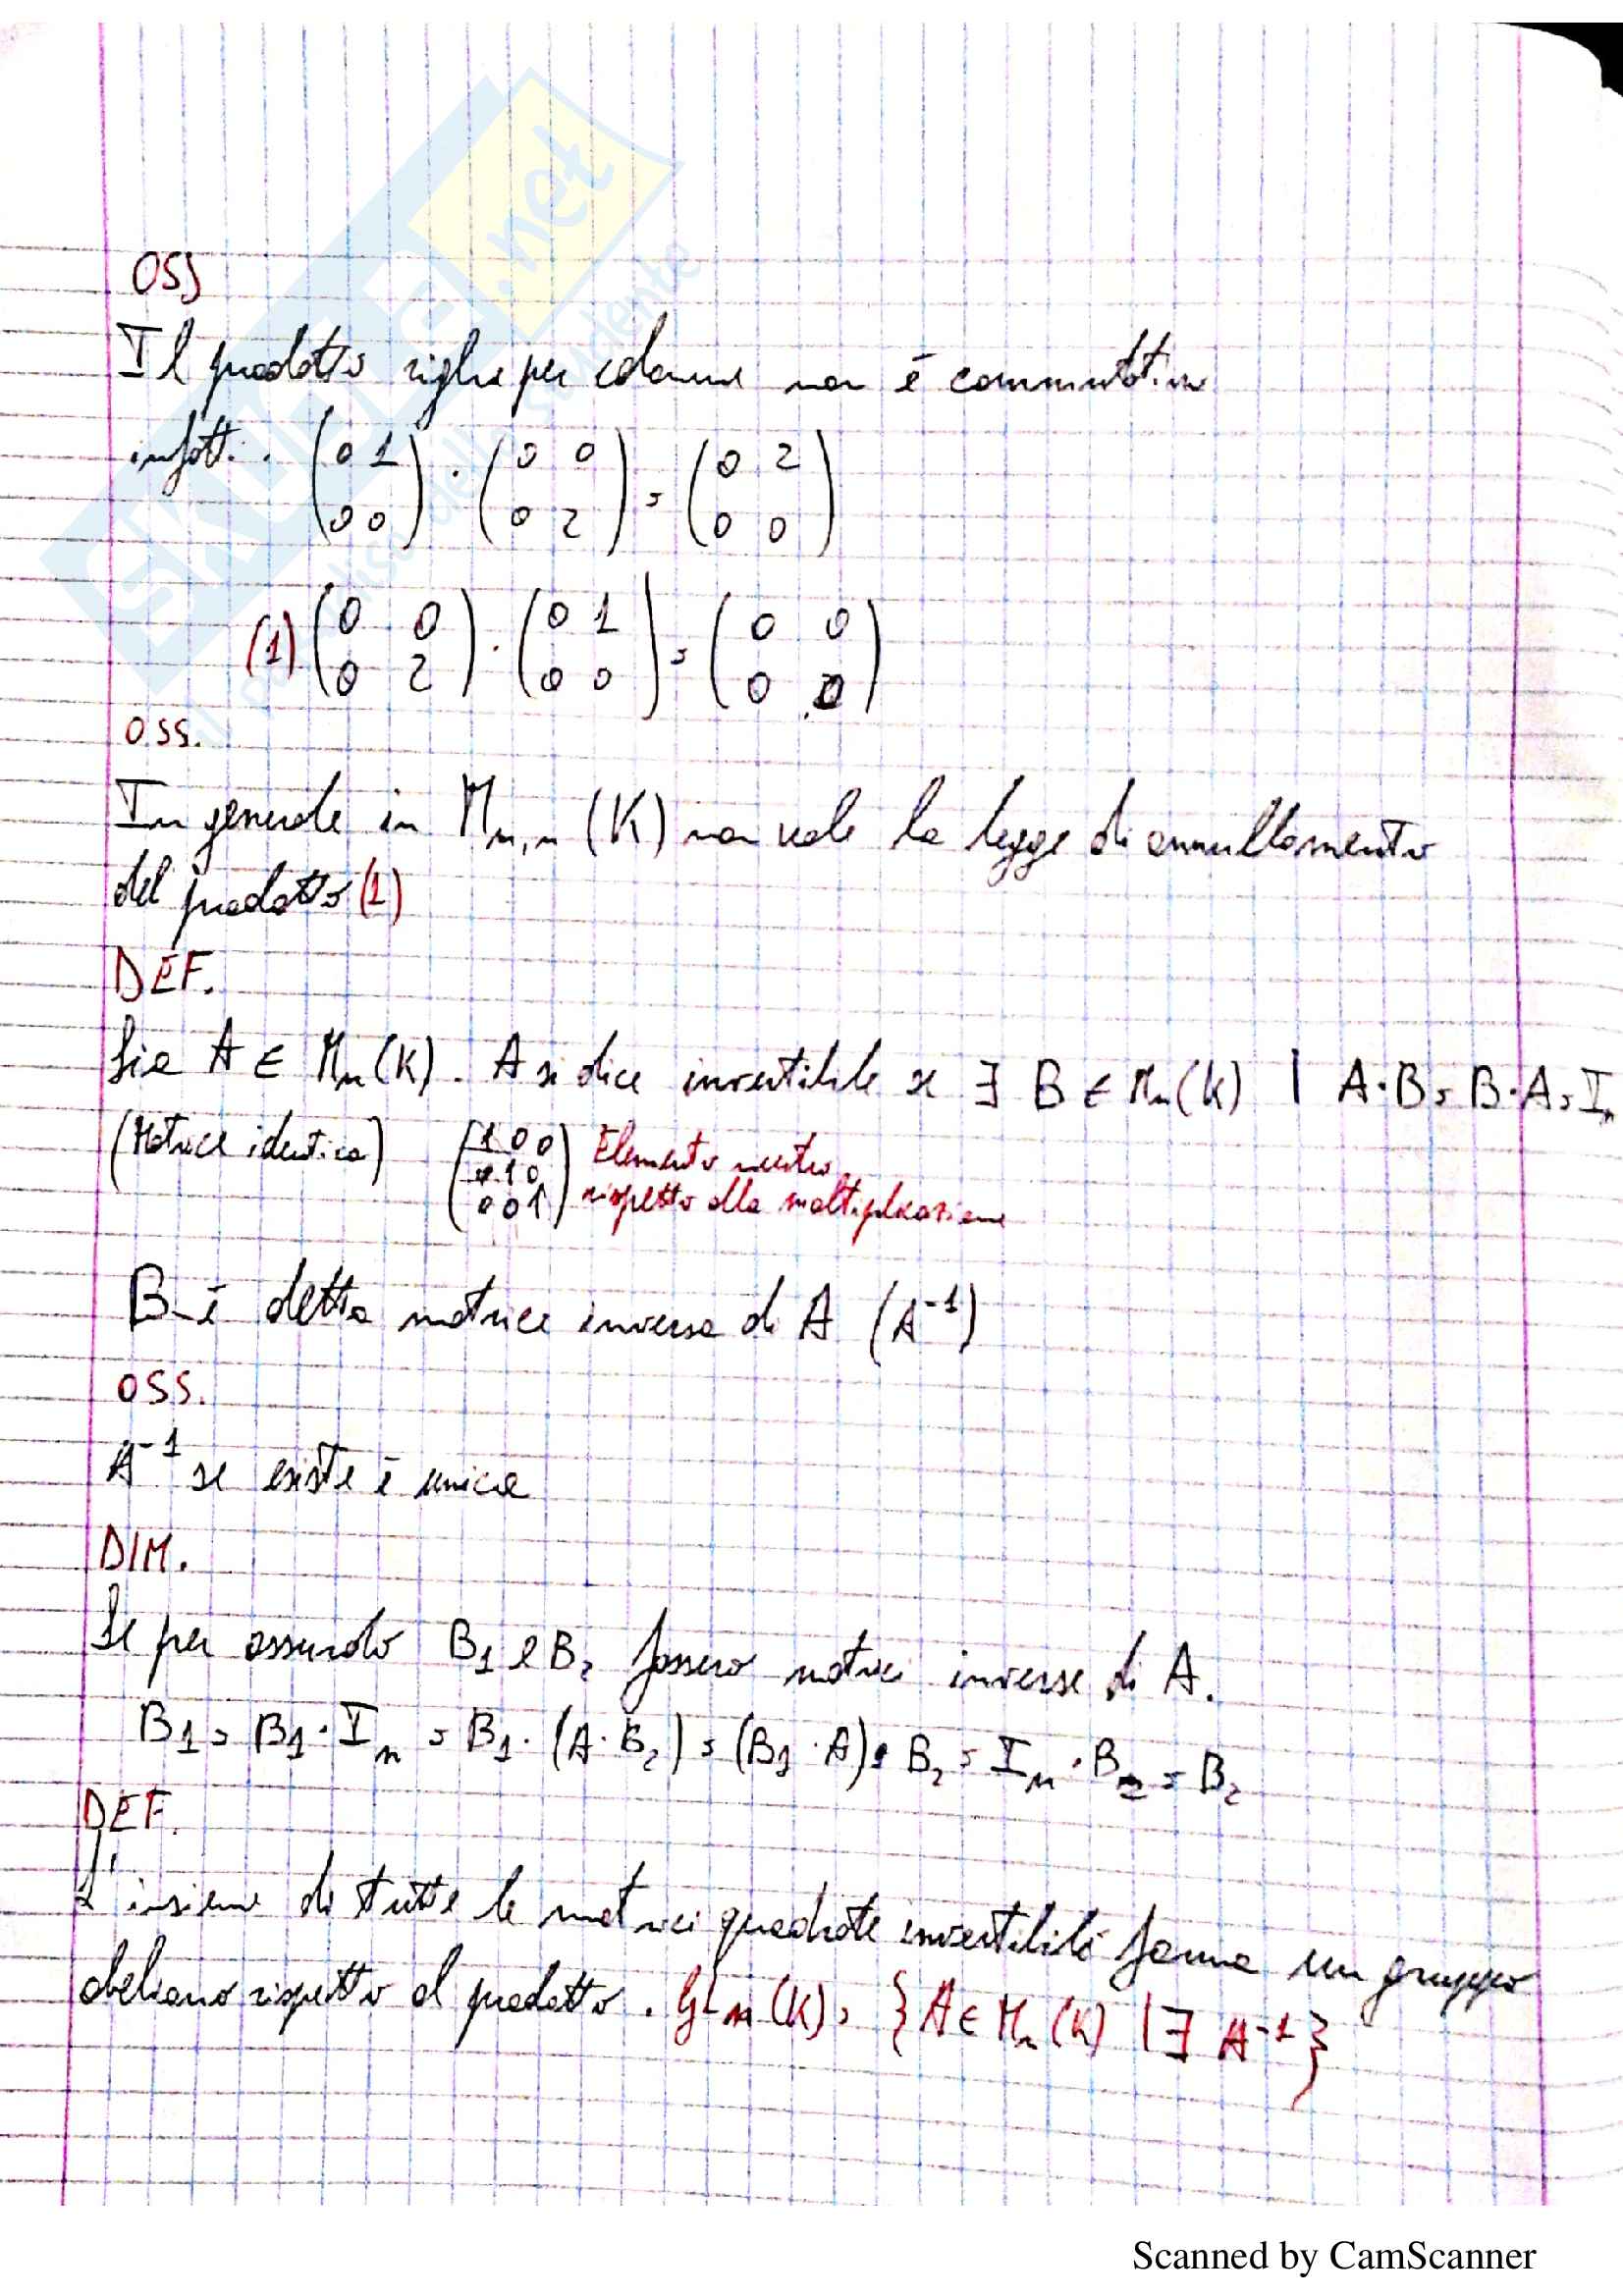 OSS
Il prodotto righe per colonne non è commutativo
infatti. (0 1 / 0 0) · (0 0 / 0 2) = (0 2 / 0 0)
(1) (0 0 / 0 2) · (0 1 / 0 0) = (0 0 / 0 0)
OSS.
In generale in Mn,n (K) non vale la legge di annullamento
del prodotto (1)
DEF.
Sia A ∈ Mn(K). A si dice invertibile se ∃ B ∈ Mn(K) | A·B = B·A = In
(Matrice identica) (1 0 0 / 0 1 0 / 0 0 1) Elemento neutro
rispetto alla moltiplicazione
B è detta matrice inversa di A (A⁻¹)
OSS.
A⁻¹ se esiste è unica
DIM.
Se per assurdo B1 e B2 fossero matrici inverse di A.
B1 = B1 · In = B1 · (A · B2) = (B1 · A) · B2 = In · B2 = B2
DEF.
L'insieme di tutte le matrici quadrate invertibili forma un gruppo
abeliano rispetto al prodotto. GLn(K) = {A ∈ Mn(K) | ∃ A⁻¹}
SKUOLA.net
Scanned by CamScanner